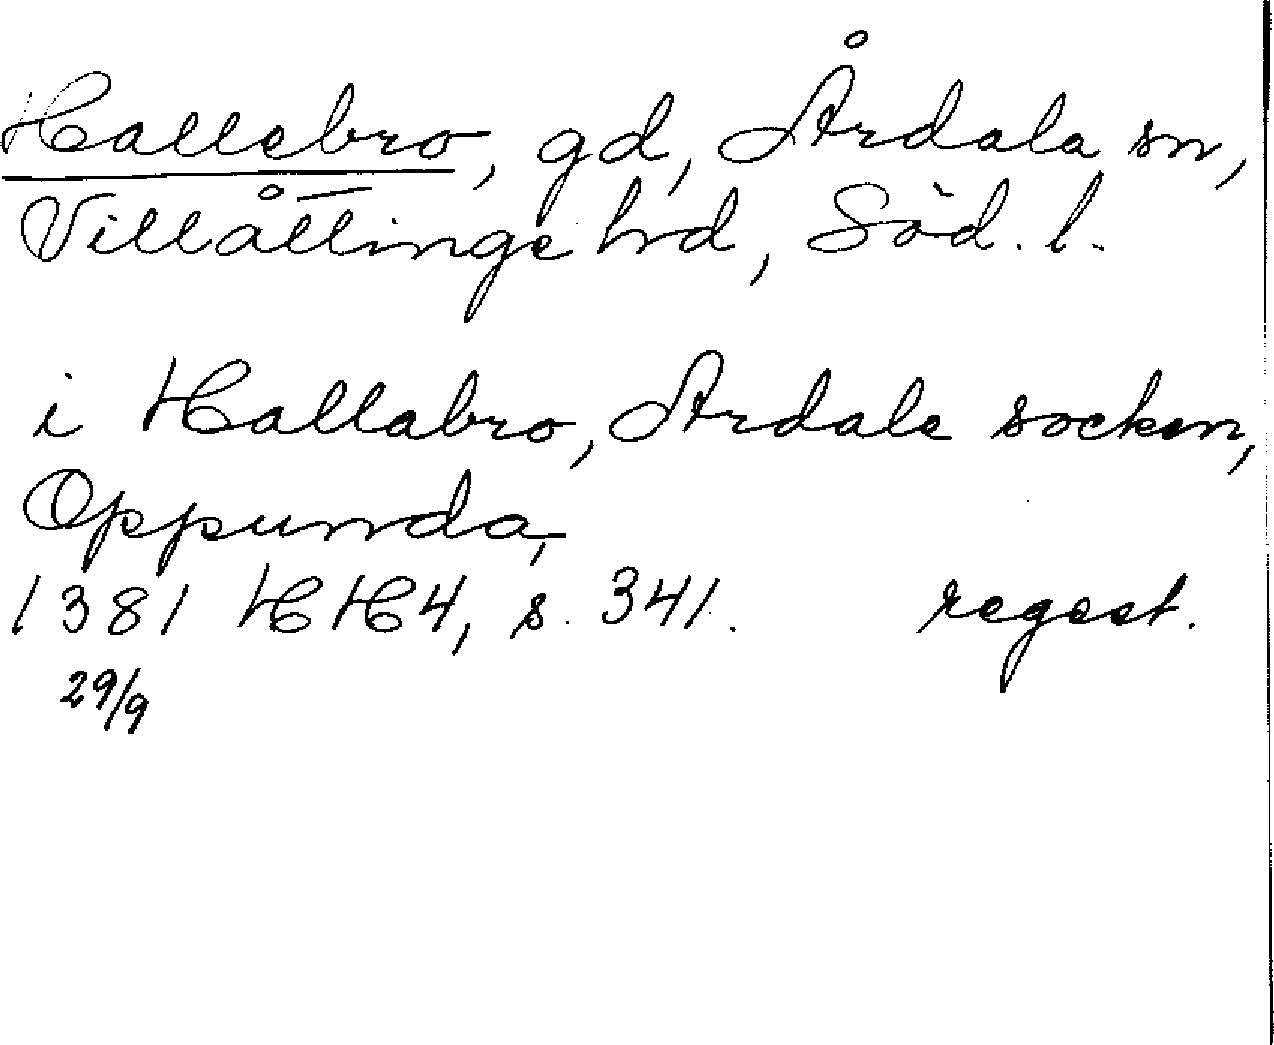 Hallebro, gd, Årdala sn,
Villåttinge hd, Söd. l.
i Hallabro, Ardale socken,
Oppunda,
1381 HH4, s. 341. regest.
29/9